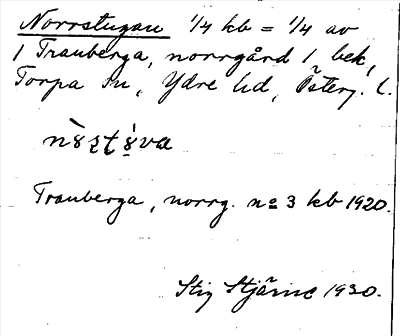 Norrstugan 1/4 kb = 1/4 av
1 Tranberga, norrgård 1 bek,
Torpa sn, Ydre hd, Österg. l.
Tranberga, norrg. no 3 kb 1920.
Stig Stjärne 1930.